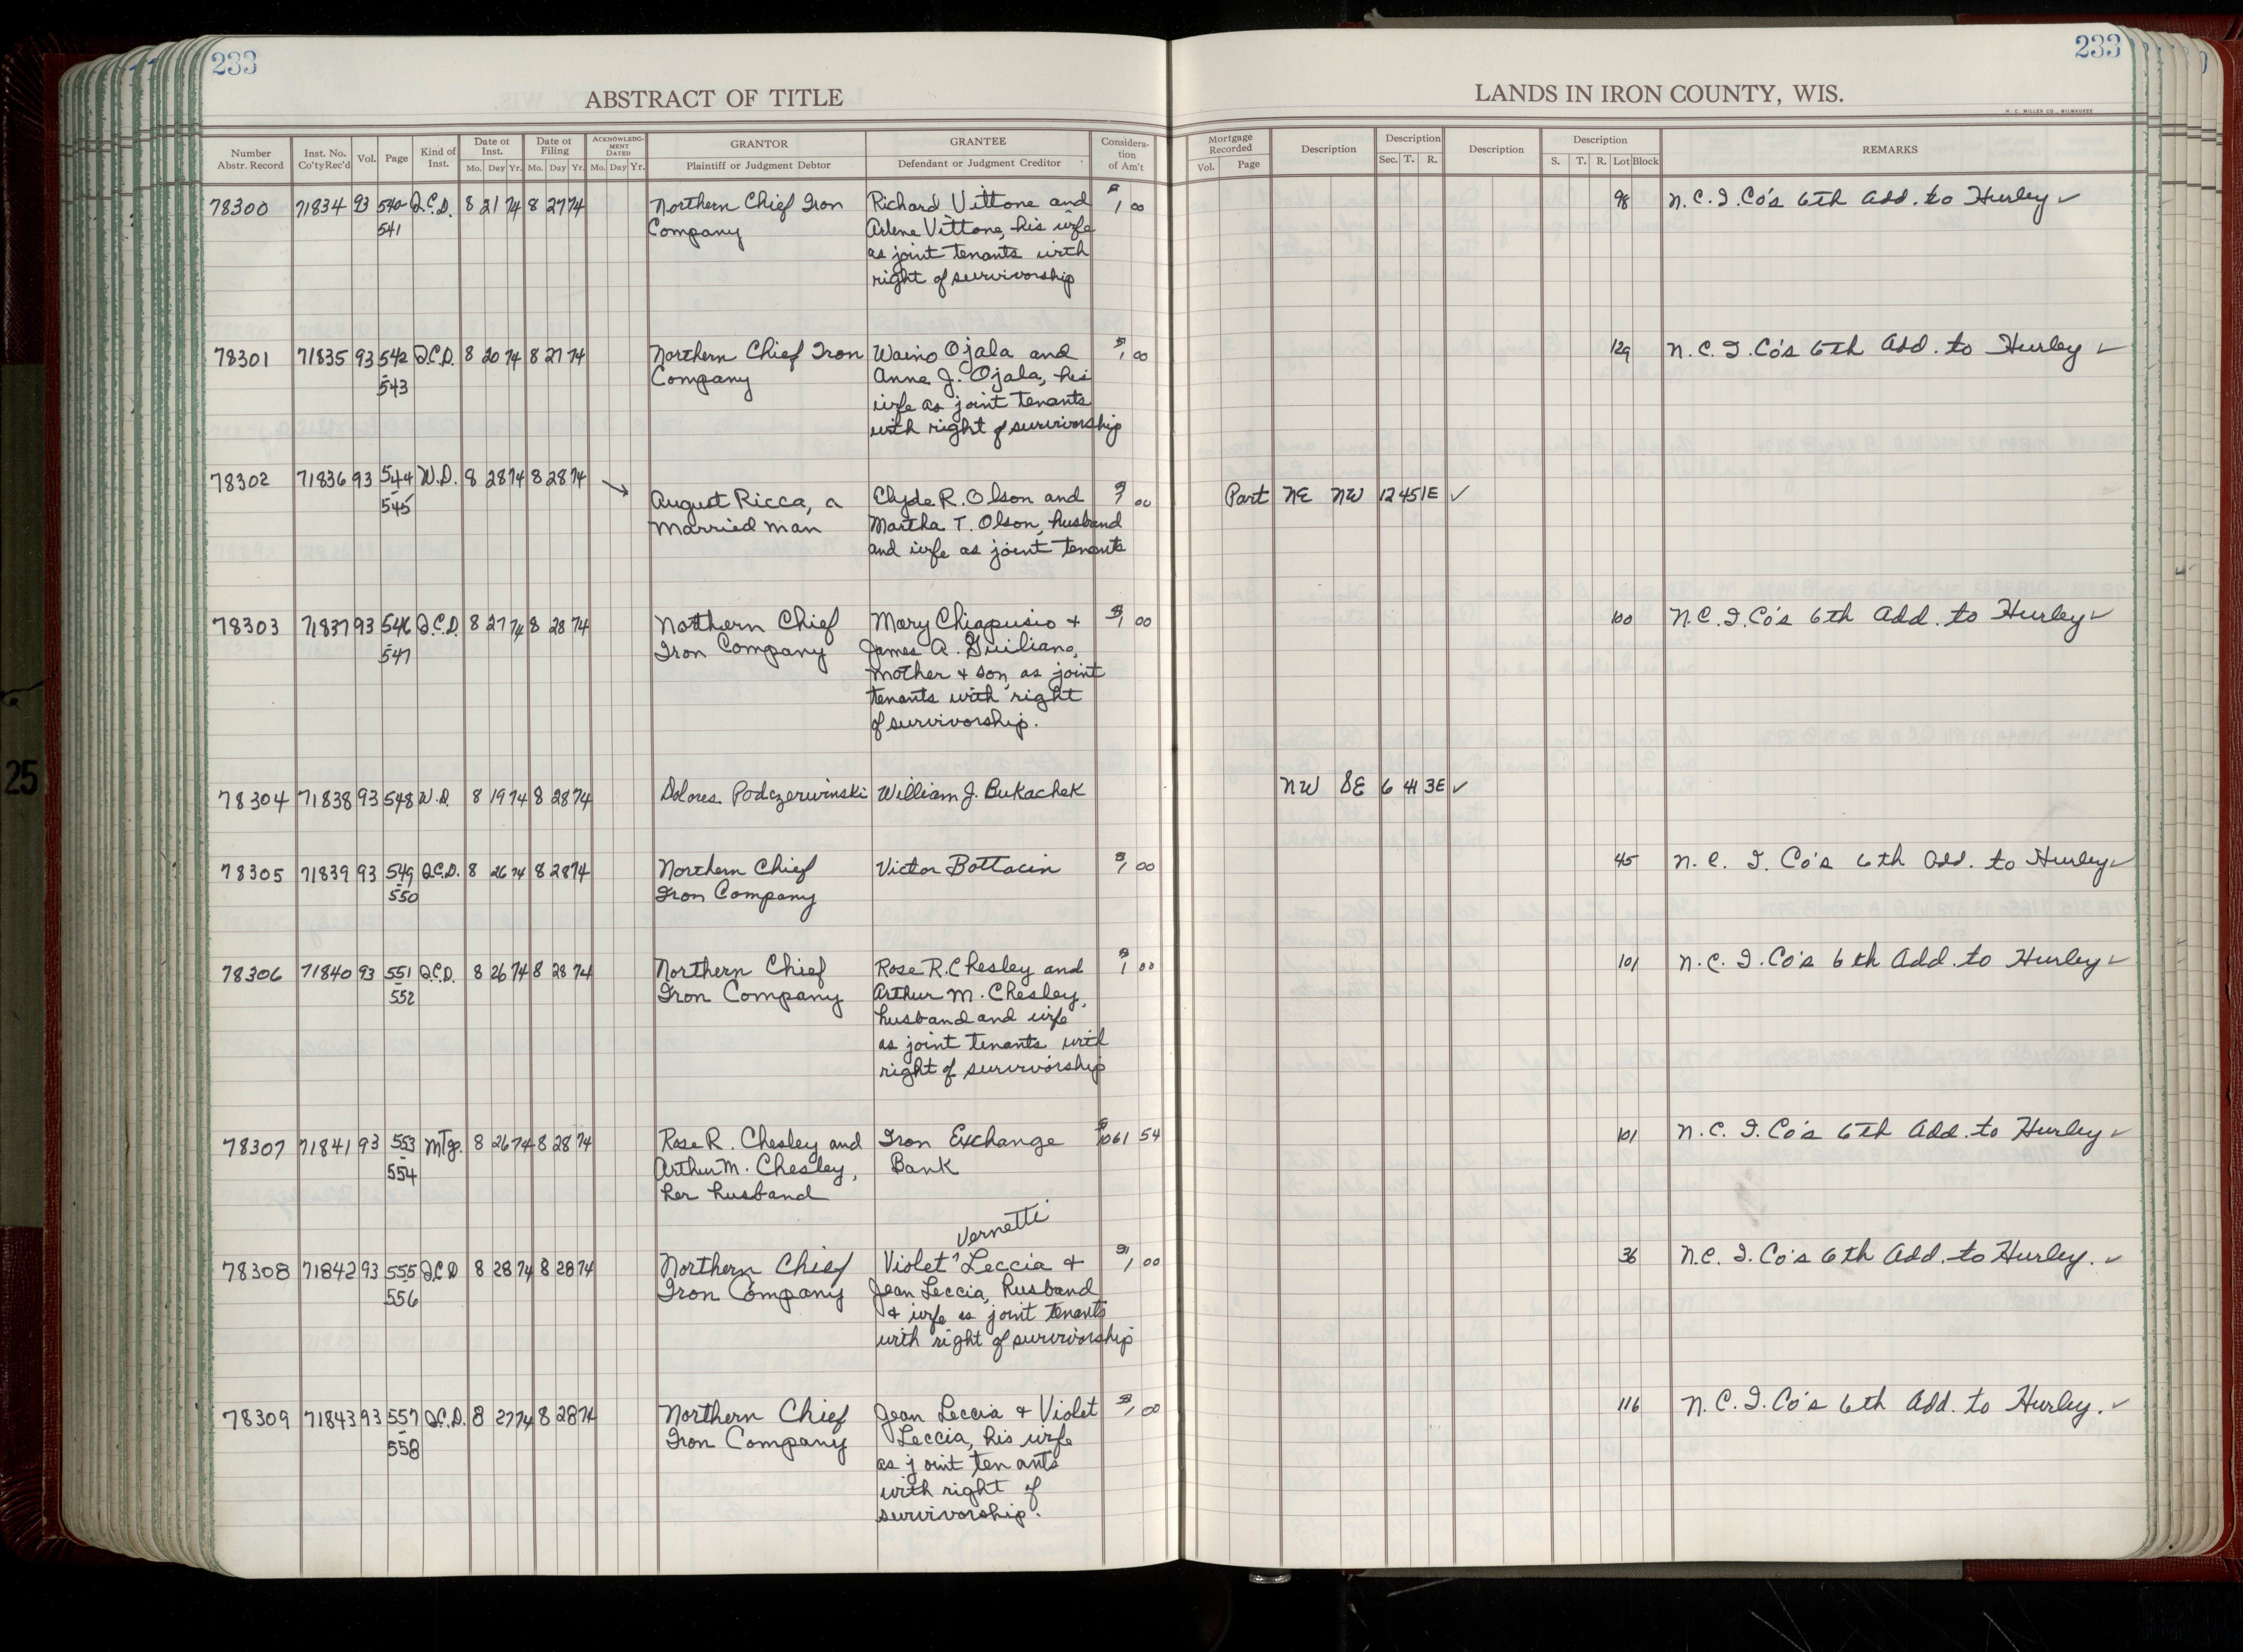 233
233
ABSTRACT OF TITLE
LANDS IN IRON COUNTY, WIS.
H. C. MILLER CO., MILWAUKEE
Number Abstr. Record Inst. No. Co'ty Rec'd Vol. Page Kind of Inst. Date of Inst. Mo. Day Yr. Date of Filing Mo. Day Yr. ACKNOWLEDGMENT DATED Mo. Day Yr. GRANTOR Plaintiff or Judgment Debtor GRANTEE Defendant or Judgment Creditor Consideration of Am't
Mortgage Recorded Vol. Page Description Description Sec. T. R. Description Description S. T. R. Lot Block REMARKS
78300 71834 93 540- Q.C.D. 8 21 74 8 27 74 Northern Chief Iron Richard Vittone and $1 00 98 N.C.I.Co's 6th Add. to Hurley ✓
541 Company Arlene Vittone, his wife
as joint tenants with
right of survivorship
78301 71835 93 542 Q.C.D. 8 20 74 8 27 74 Northern Chief Iron Waino Ojala and $1 00 129 N.C.I.Co's 6th Add. to Hurley ✓
-543 Company Anna J. Ojala, his
wife as joint tenants
with right of survivorship
78302 71836 93 544 W.D. 8 28 74 8 28 74 →
-545 August Ricca, a Clyde R. Olson and 00 Part NE NW 12 45 1E ✓
married man Martha T. Olson, husband
and wife as joint tenants
78303 71837 93 546 Q.C.D. 8 27 74 8 28 74 Northern Chief Mary Chiapusio + $1 00 100 N.C.I.Co's 6th Add. to Hurley ✓
547 Iron Company James A. Guiliano,
mother + son, as joint
tenants with right
of survivorship.
78304 71838 93 548 W.D. 8 19 74 8 28 74 Dolores Podczerwinski William J. Bukachek NW SE 6 41 3E ✓
78305 71839 93 549 Q.C.D. 8 26 74 8 28 74 Northern Chief Victor Bottacin $1 00 45 N.C.I.Co's 6th Add. to Hurley ✓
-550 Iron Company
78306 71840 93 551 Q.C.D. 8 26 74 8 28 74 Northern Chief Rose R. Chesley and $1 00 101 N.C.I.Co's 6th Add. to Hurley ✓
-552 Iron Company Arthur M. Chesley,
husband and wife
as joint tenants with
right of survivorship
78307 71841 93 553 Mtg. 8 26 74 8 28 74 Rose R. Chesley and Iron Exchange 54 101 N.C.I.Co's 6th Add. to Hurley ✓
-554 Arthur M. Chesley, Bank
her husband
Vernetti
78308 71842 93 555 Q.C.D 8 28 74 8 28 74 Northern Chief Violet Leccia + $1 00 36 N.C.I.Co's 6th Add. to Hurley. ✓
-556 Iron Company Jean Leccia, husband
+ wife as joint tenants
with right of survivorship
78309 71843 93 557 Q.C.D. 8 27 74 8 28 74 Northern Chief Jean Leccia + Violet $1 00 116 N.C.I.Co's 6th Add. to Hurley. ✓
-558 Iron Company Leccia, his wife
as joint tenants
with right of
survivorship.
25